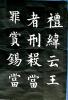 禮緯云王
者刑殺當
罪賞錫當